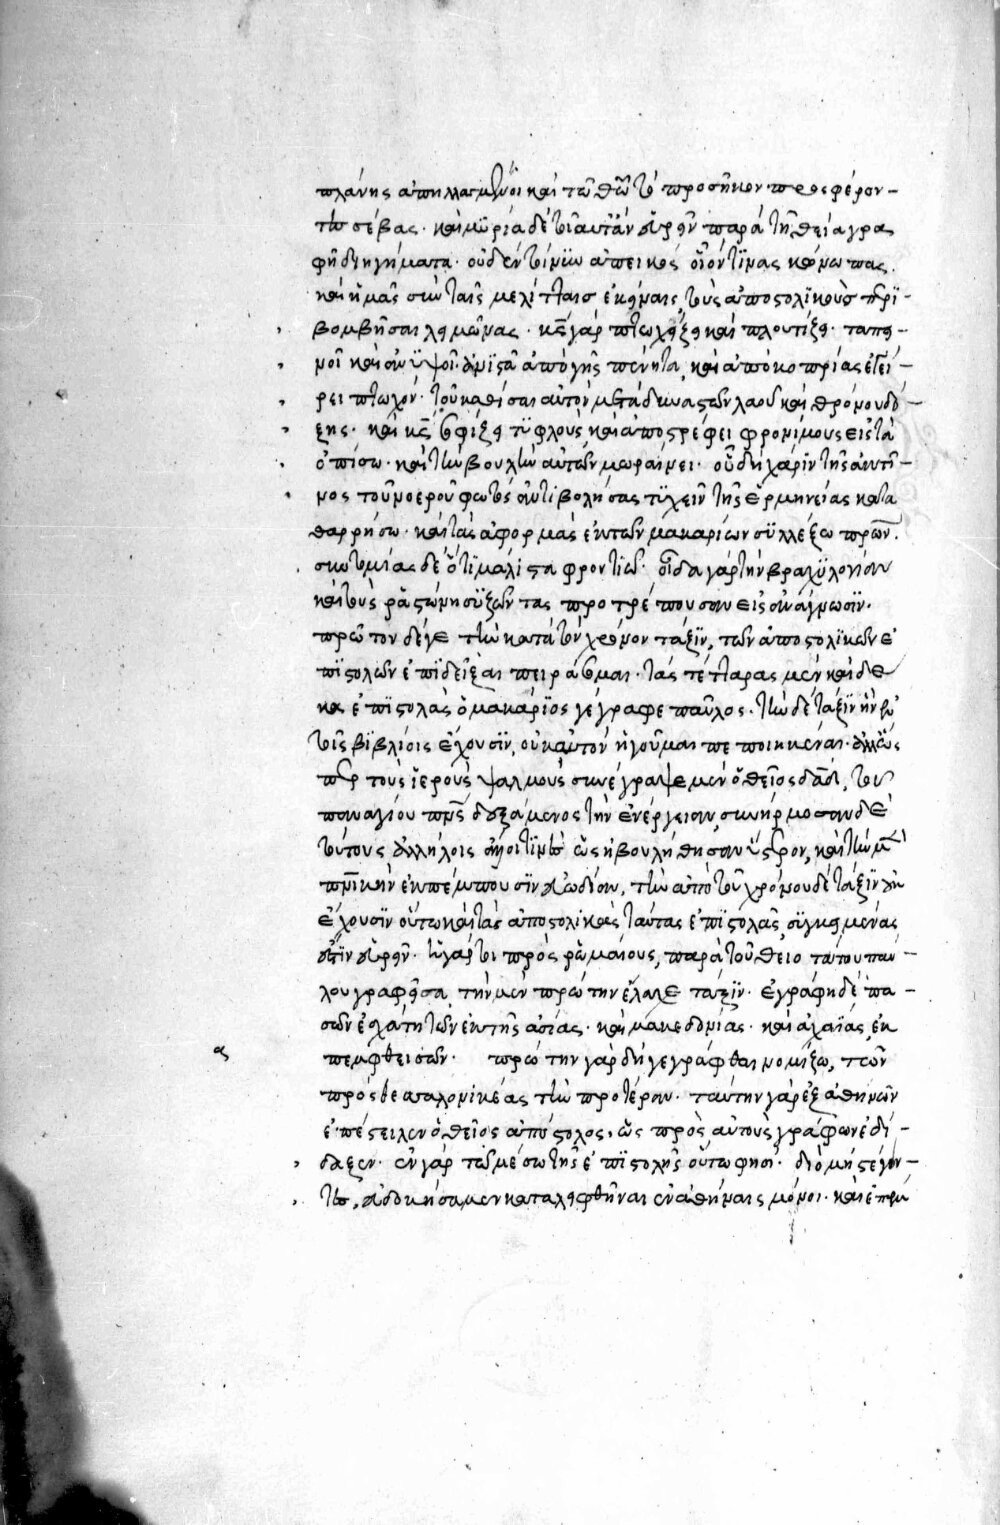 πλάνης ἀπηλλαγμένοι καὶ τῶ θῶ τὸ προσῆκον προσφέρον–
τες σέβας· καὶ μυρία δὲ τοιαῦτ' ἂν εὕροι παρὰ τῆ θεία γρα
φῆ διηγήματα· οὐδὲν τοίνυν ἀπεικὸς οἷόν τινας
καὶ ἡμᾶς σὺν ταῖς μελίτταις ἐκείναις τοὺς ἀποστολικοὺς περι–
βομβῆσαι λειμῶνας· κς γὰρ πτωχίζει καὶ πλουτίζει· ταπει–
νοῖ καὶ ἀνυψοῖ· ἀνιστᾶ ἀπὸ γῆς πένητα, καὶ ἀπὸ κοπρίας ἐγεί–
ρει πτωχόν· τοῦ καθίσαι αὐτὸν μετὰ δυναστῶν λαοῦ καὶ θρόνου δό–
ξης· καὶ κς σοφίζει τυφλούς, καὶ ἀποστρέφει φρονίμους εἰς τὰ
ὀπίσω· καὶ τὴν βουλὴν αὐτῶν μωραίνει· οὗ δὴ χάριν τῆς ἀντι–
μος τοῦ νοεροῦ φωτὸς ἀντιβολήσας τυχεῖν τῆς ἑρμηνείας κατα
θαρρήσω· καὶ τὰς ἀφορμὰς ἐκ τῶν μακαρίων συλλέξω πρῶν·
συντομίας δὲ ὅτι μάλιστα φροντιῶ· οἶδα γὰρ τὴν βραχυλογίαν
καὶ τοὺς ῥαστώνη συζῶντας προτρέπουσαν εἰς ἀνάγνωσιν·
πρῶτον δέγε τὴν κατὰ τὸν χρόνον τάξιν, τῶν ἀποστολικῶν ἐ
πιστολῶν ἐπιδεῖξαι πειράσομαι· τὰς τέτταρας μὲν καὶ δέ
κα ἐπιστολὰς ὁ μακάριος γέγραφε παῦλος· τὴν δὲ τάξιν ἣν ἐν
τοῖς βιβλίοις ἔχουσιν, οὐκ αὐτὸν ἡγοῦμαι πεποιηκέναι· ἀλλ' ὥς
περ τοὺς ἱεροὺς ψαλμοὺς συνέγραψε μὲν ὁ θεῖος δαδ, τοῦ
παναγίου πνς δεξάμενος τὴν ἐνέργειαν, συνήρμοσαν δὲ
τούτους ἀλλήλοις ἕτεροί τινες ὡς ἠβουλήθησαν ὕστερον, καὶ τὴν μὲν
πνικὴν ἐκπέμπουσιν εὐωδίαν, τὴν ἀπὸ τοῦ χρόνου δὲ τάξιν οὐκ
ἔχουσιν οὕτω καὶ τὰς ἀποστολικὰς ταύτας ἐπιστολὰς, συγκειμένας
ἐστὶν εὑρεῖν· ἡ γάρ τοι πρὸς ῥωμαίους, παρὰ τοῦ θειοτάτου παύ–
λου γραφεῖσα, τὴν μὲν πρώτην ἔλαχε τάξιν· ἐγράφη δὲ πα–
σῶν ἐσχάτη τῶν ἐκ τῆς ἀσίας· καὶ μακεδονίας· καὶ ἀχαΐας ἐκ
πεμφθεισῶν· πρώτην γὰρ δὴ γεγράφθαι νομίζω, τῶν
πρὸς θεσσαλονικέας τὴν προτέραν· ταύτην γὰρ ἐξ ἀθηνῶν
ἐπέστειλεν ὁ θεῖος ἀπόστολος, ὡς πρὸς αὐτοὺς γράφων ἐδί–
δαξεν· ἐν γὰρ τῶ μέσω τῆς ἐπιστολῆς οὕτω φησὶ· διὸ μὴ στέγον–
τες, εὐδοκήσαμεν καταλειφθῆναι ἐν ἀθήναις μόνοι· καὶ ἐπέμ
α